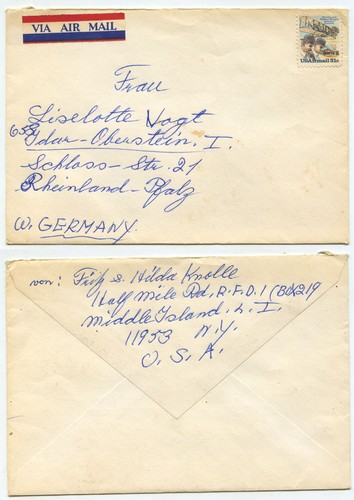 VIA AIR MAIL
USAirmail 31c
Frau
Liselotte Vogt
658
Idar-Oberstein. I.
Schloss-Str. 21
Rheinland-Pfalz
W. GERMANY.
von: Fritz u. Hilda Knolle
Half Mile Rd, R.F.D. 1 (Box 219
Middle Island, L. I.
11953 N.Y.
U. S. A.